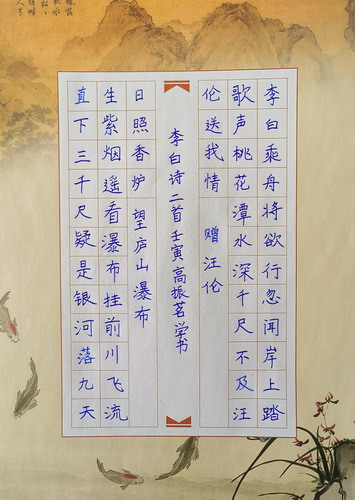 李白乘舟将欲行忽闻岸上踏
歌声桃花潭水深千尺不及汪
伦送我情 赠汪伦
李白诗二首壬寅高振茗学书
日照香炉 望庐山瀑布
生紫烟遥看瀑布挂前川飞流
直下三千尺疑是银河落九天